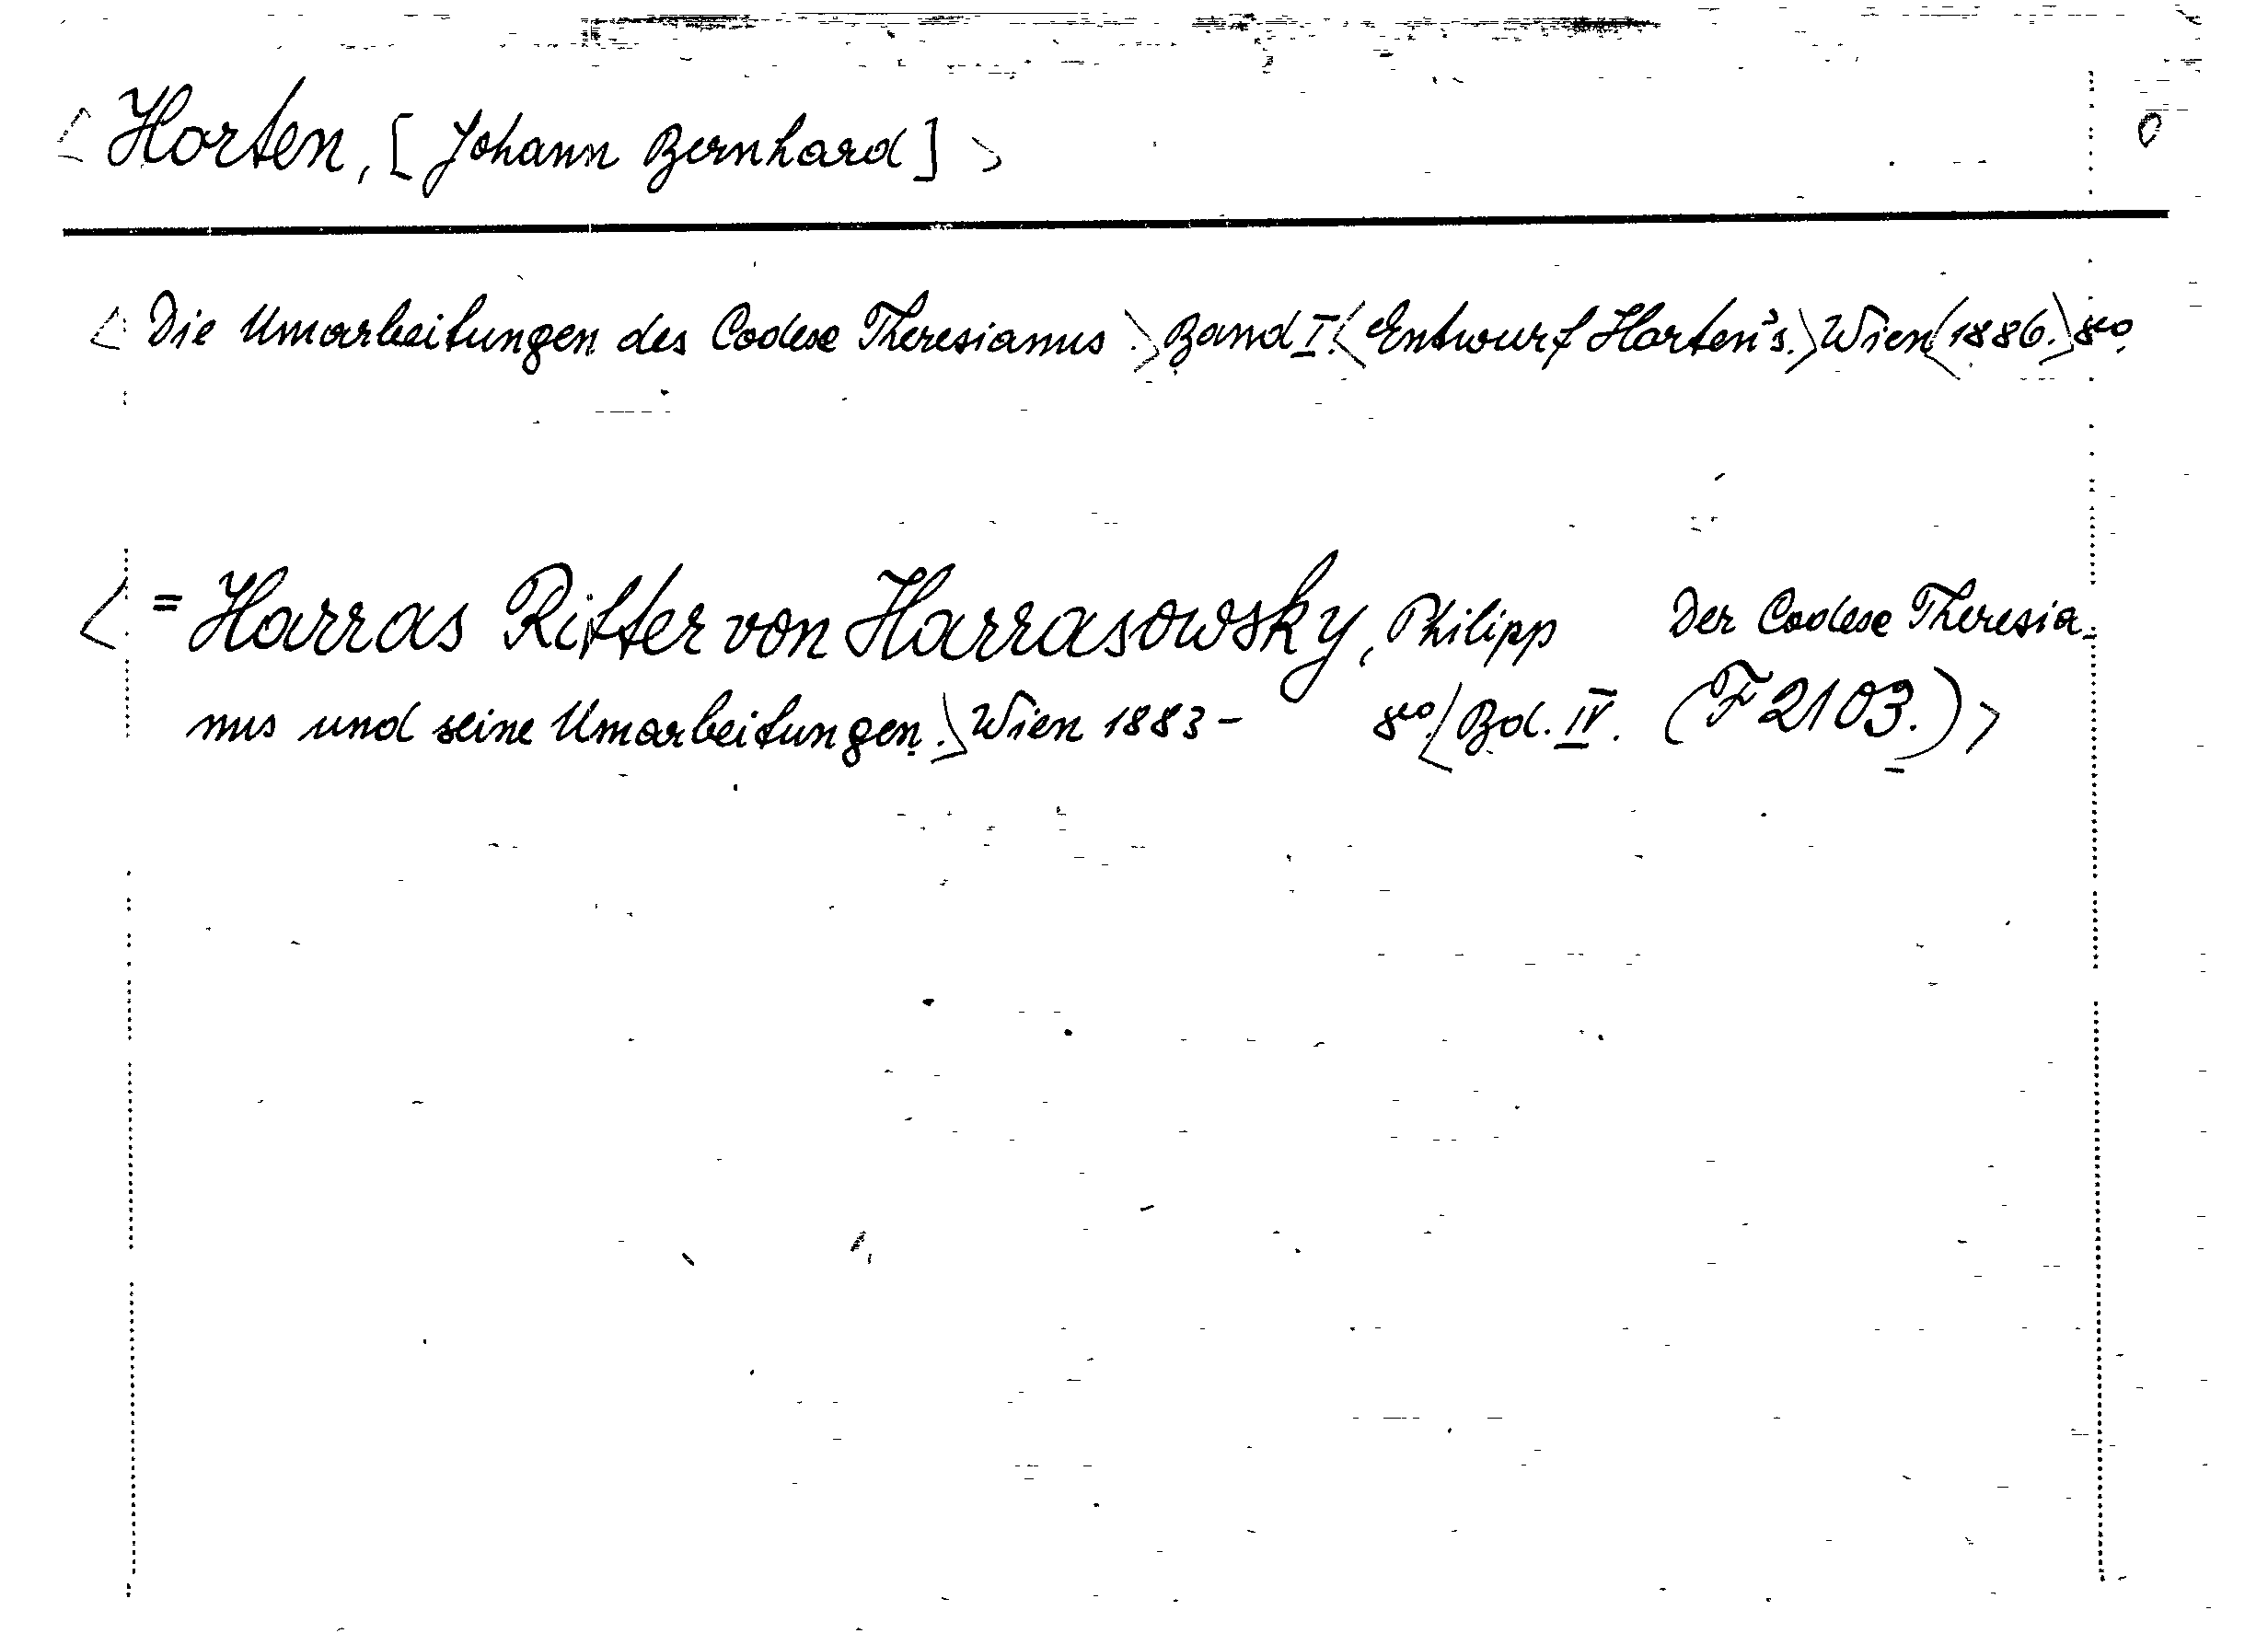 <Horten, [Johann Bernhard]> 0
<Die Umarbeitungen des Codex Theresianus.> Band I.<Entwurf Horten's.>Wien<1886.>8vo.
<= Harras Ritter von Harrasowsky, Philipp Der Codex Theresia-
nus und seine Umarbeitungen.>Wien 1883- 8vo.<Bd. IV. (F 2103.)>